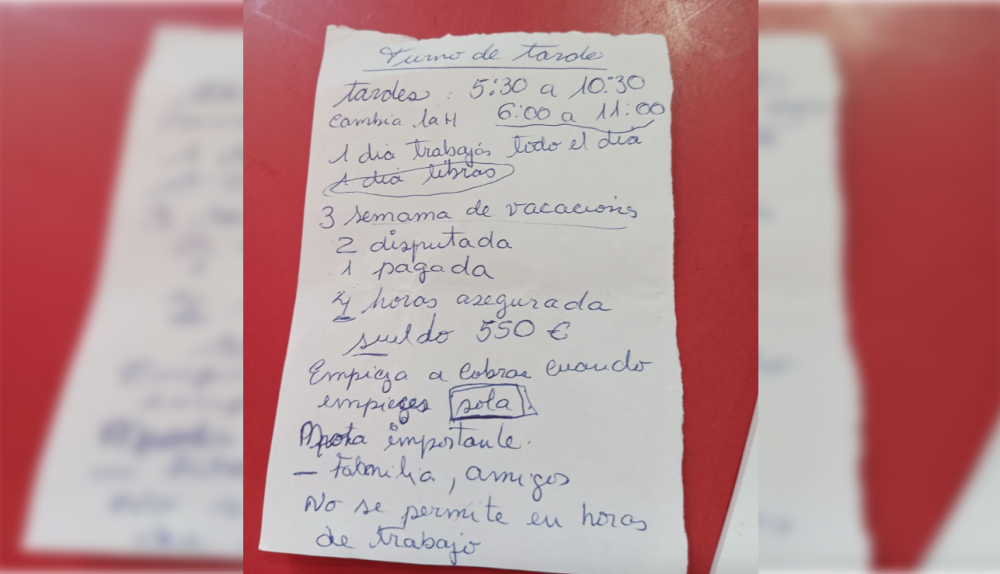 Turno de tarde
tardes : 5:30 a 10:30
Cambia la H 6:00 a 11:00
1 dia trabajás todo el día
1 dia libras
3 semama de vacacions
2 disputada
1 pagada
4 horas asegurada
sueldo 550 €
Empieza a Cobrar cuando
empieges sola
Nota importante.
- Familia, amigos
No se permite en horas
de trabajo